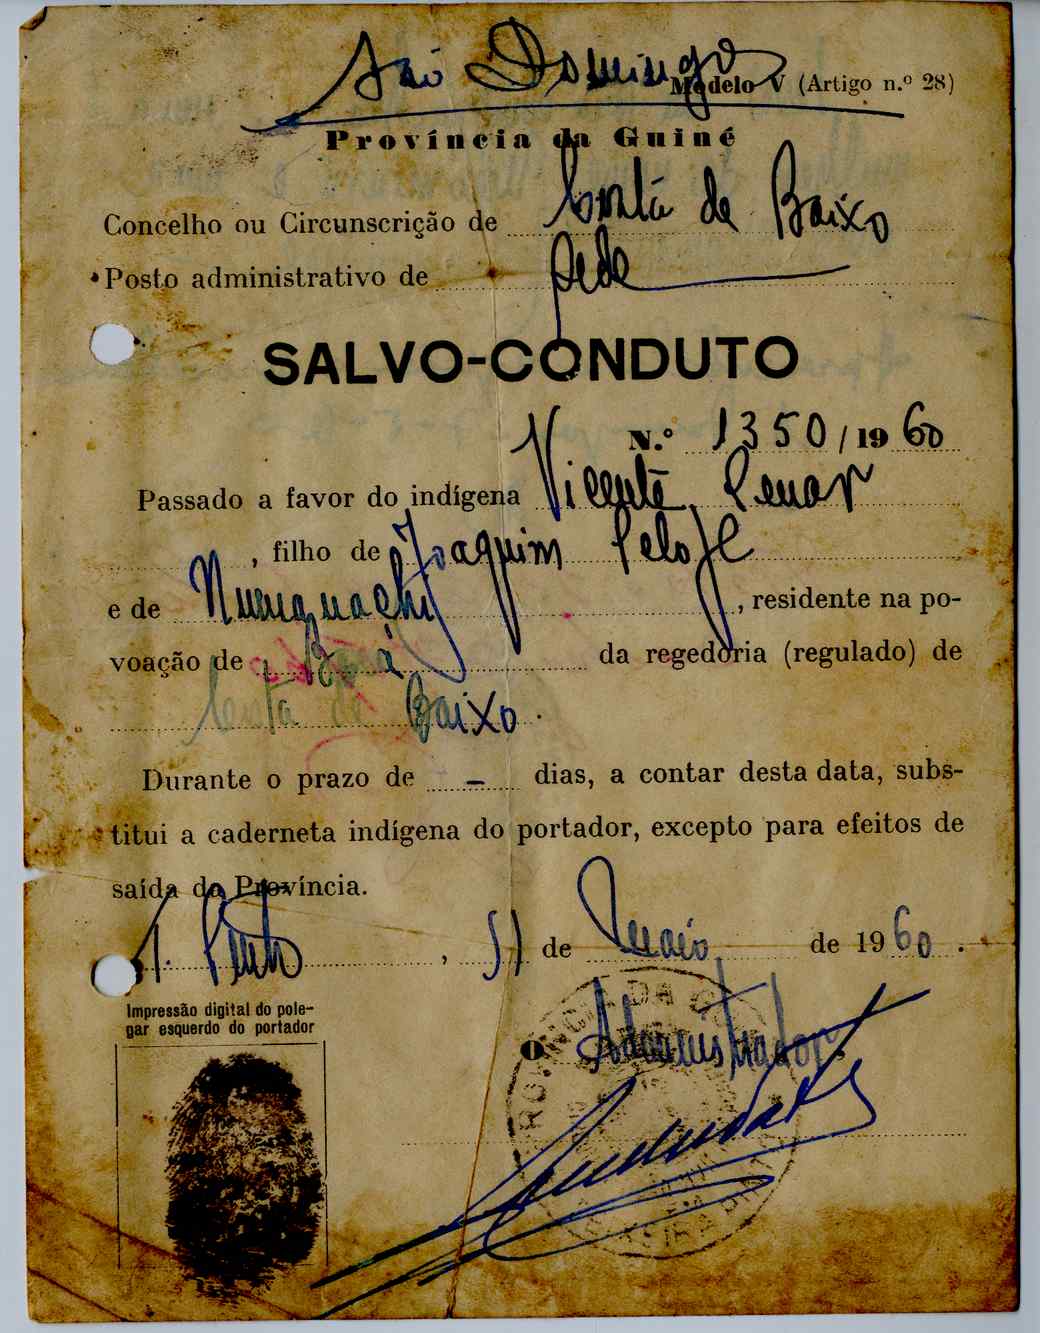 São Domingos
Modelo V (Artigo n.º 28)
Província da Guiné
Concelho ou Circunscrição de Costa de Baixo
Posto administrativo de Sede
SALVO-CONDUTO
N.º 1350/1960
Passado a favor do indígena Vicente
, filho de Joaquim
e de , residente na po-
voação de da regedoria (regulado) de
Costa de Baixo.
Durante o prazo de - dias, a contar desta data, subs-
titui a caderneta indígena do portador, excepto para efeitos de
saída da Província.
T. Pinto, 31 de Maio de 1960.
Impressão digital do pole-
gar esquerdo do portador
O Administrador,